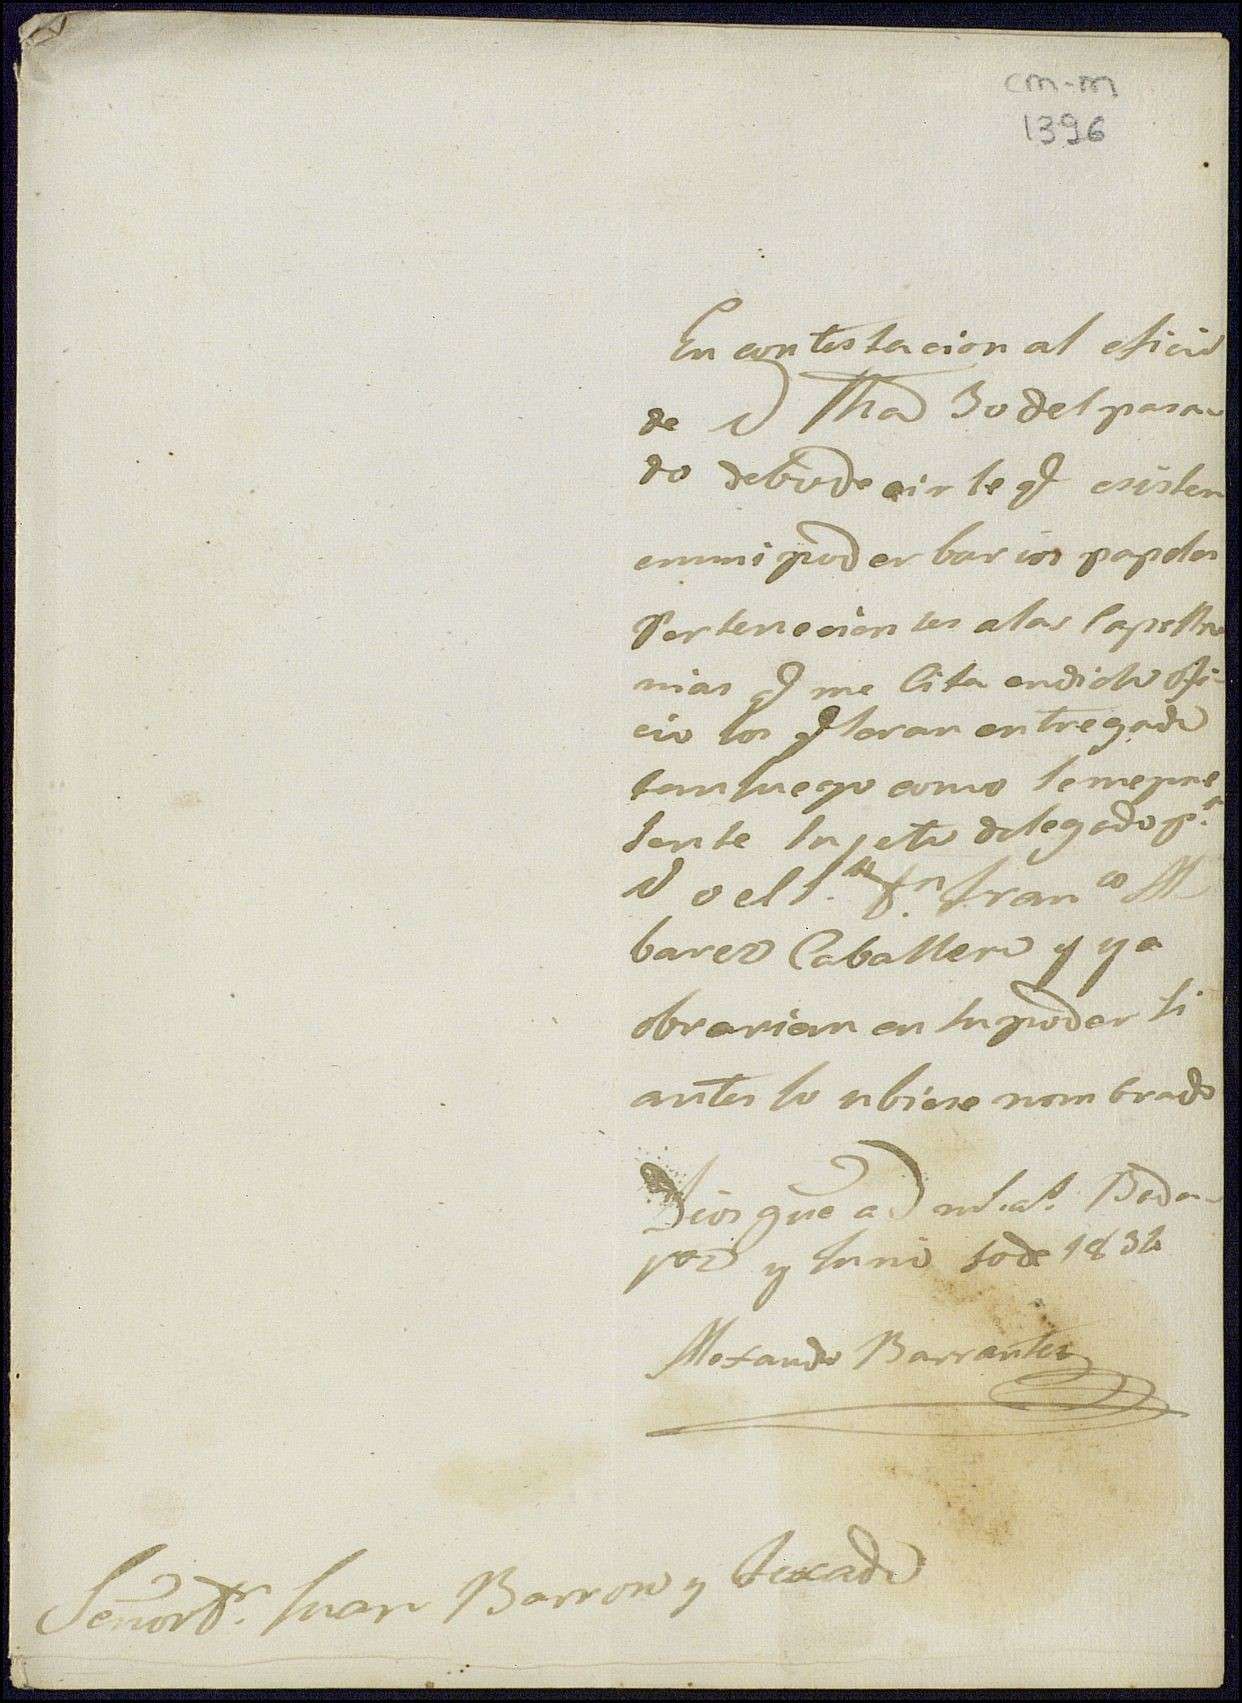 cm-m
1396
En contestacion al oficio
de V fha 30 del pasa-
do debo decirle q.e esisten
en mi poder barios papeles
pertenecientes a las Capella
nias q.e me cita en dicho ofi-
cio los q.e seran entregado
tan luego como se me pre
sente sujeto delegado p.r
V o el S.or D.n Fran.co Al
barez Caballero y ya
obrarian en su poder si
antes lo ubiese nombrado
Dios gue a V m.s a.s Bada-
joz y Junio de 183
Alexandro Barrantes
Señor D.n Juan Barron y texado